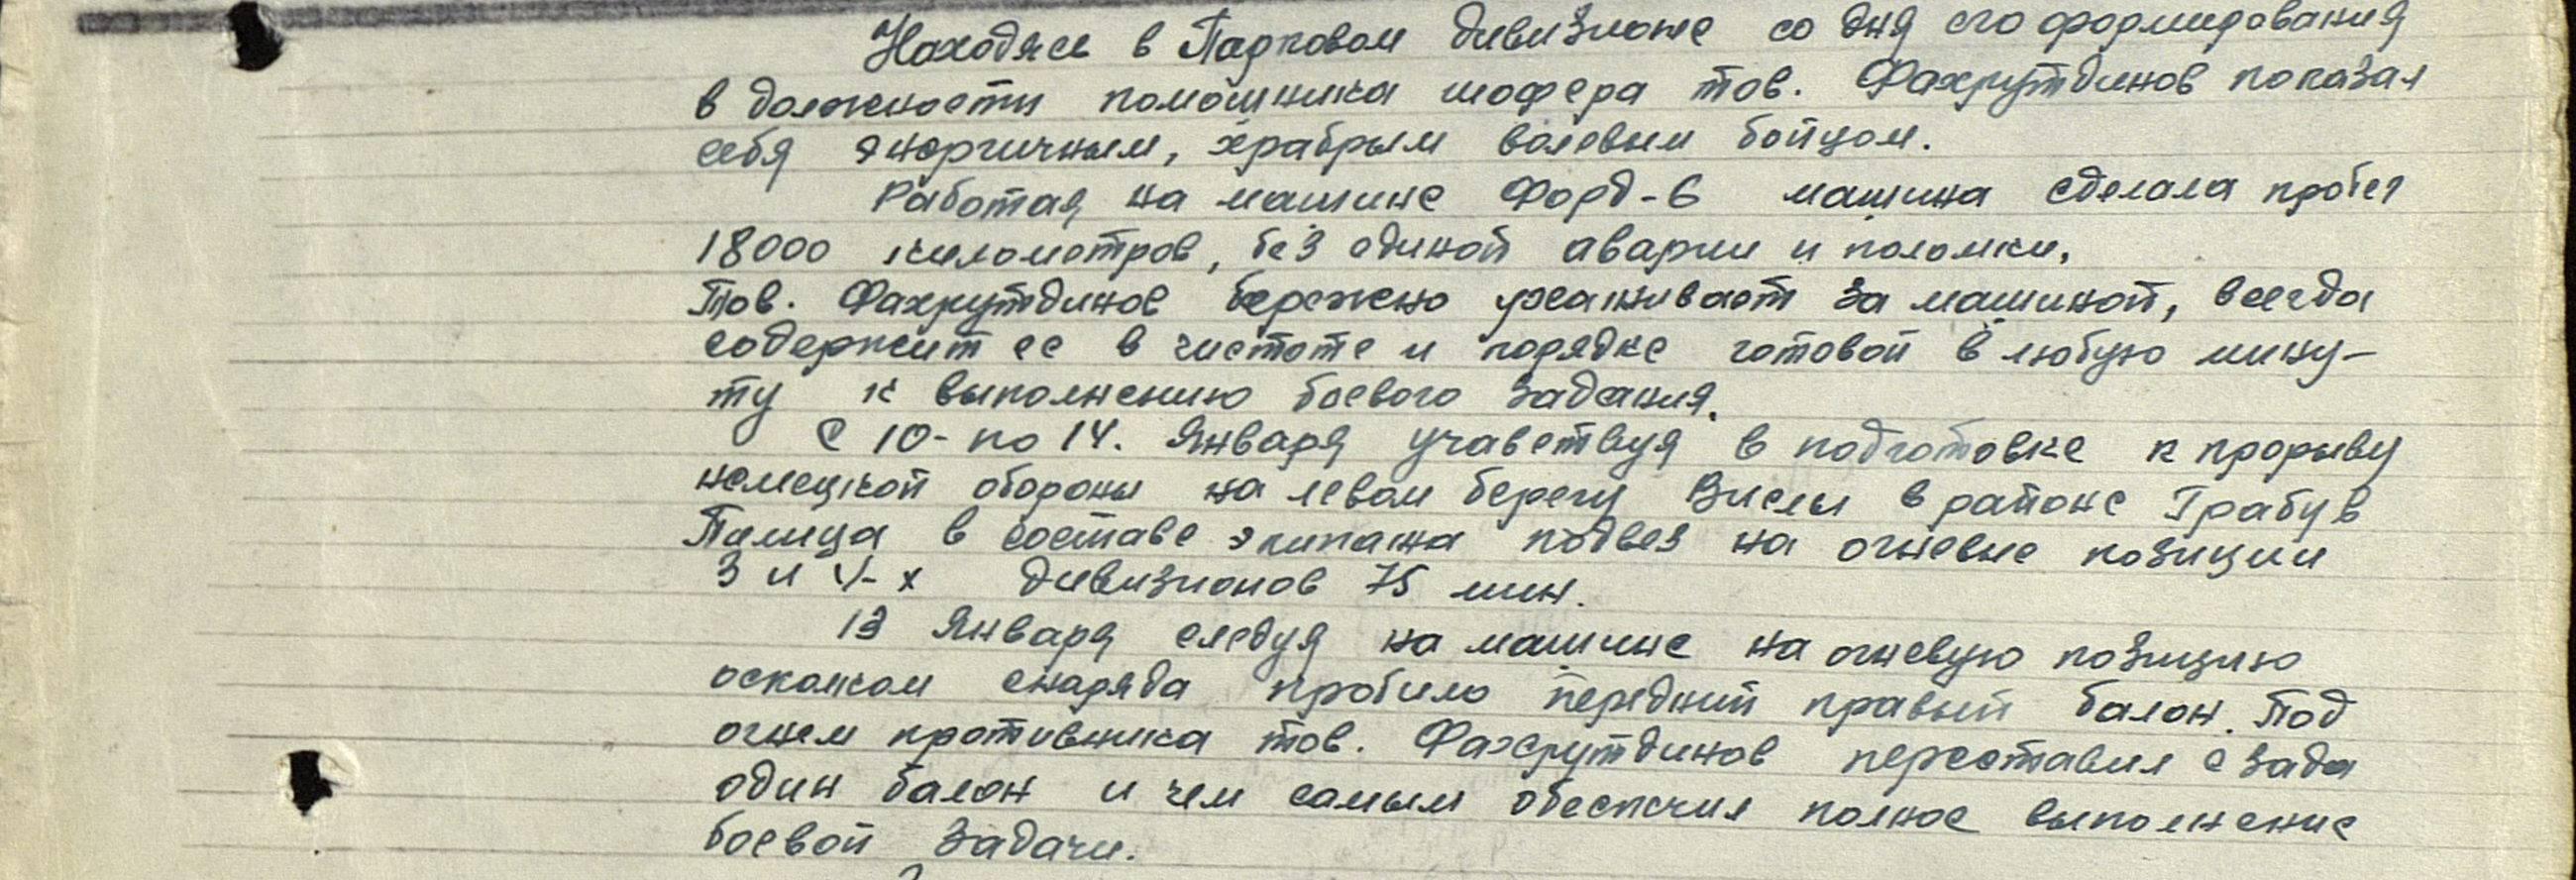 Находясь в Парковом дивизионе со дня его формирования
в должности помошника шофера тов. Фахрутдинов показал
себя энергичным, храбрым волевым бойцом.
Работая на машине Форд-6 машина сделала пробег
18000 километров, без единой аварии и поломки.
Тов. Фахрутдинов бережно ухаживает за машиной, всегда
содержит ее в чистоте и порядке готовой в любую мину-
ту к выполнению боевого задания.
С 10- по 14. Января учавствуя в подготовке к прорыву
немецкой обороны на левом берегу Вислы в районе Грабув
Пилица в составе экипажа подвез на огневые позиции
3 и 4-х дивизионов 75 мин.
13 Января следуя на машине на огневую позицию
осколком снаряда пробило передний правый балон. Под
огнем противника тов. Фахрутдинов переставил с зада
один балон и чем самым обеспечил полное выполнение
боевой задачи.